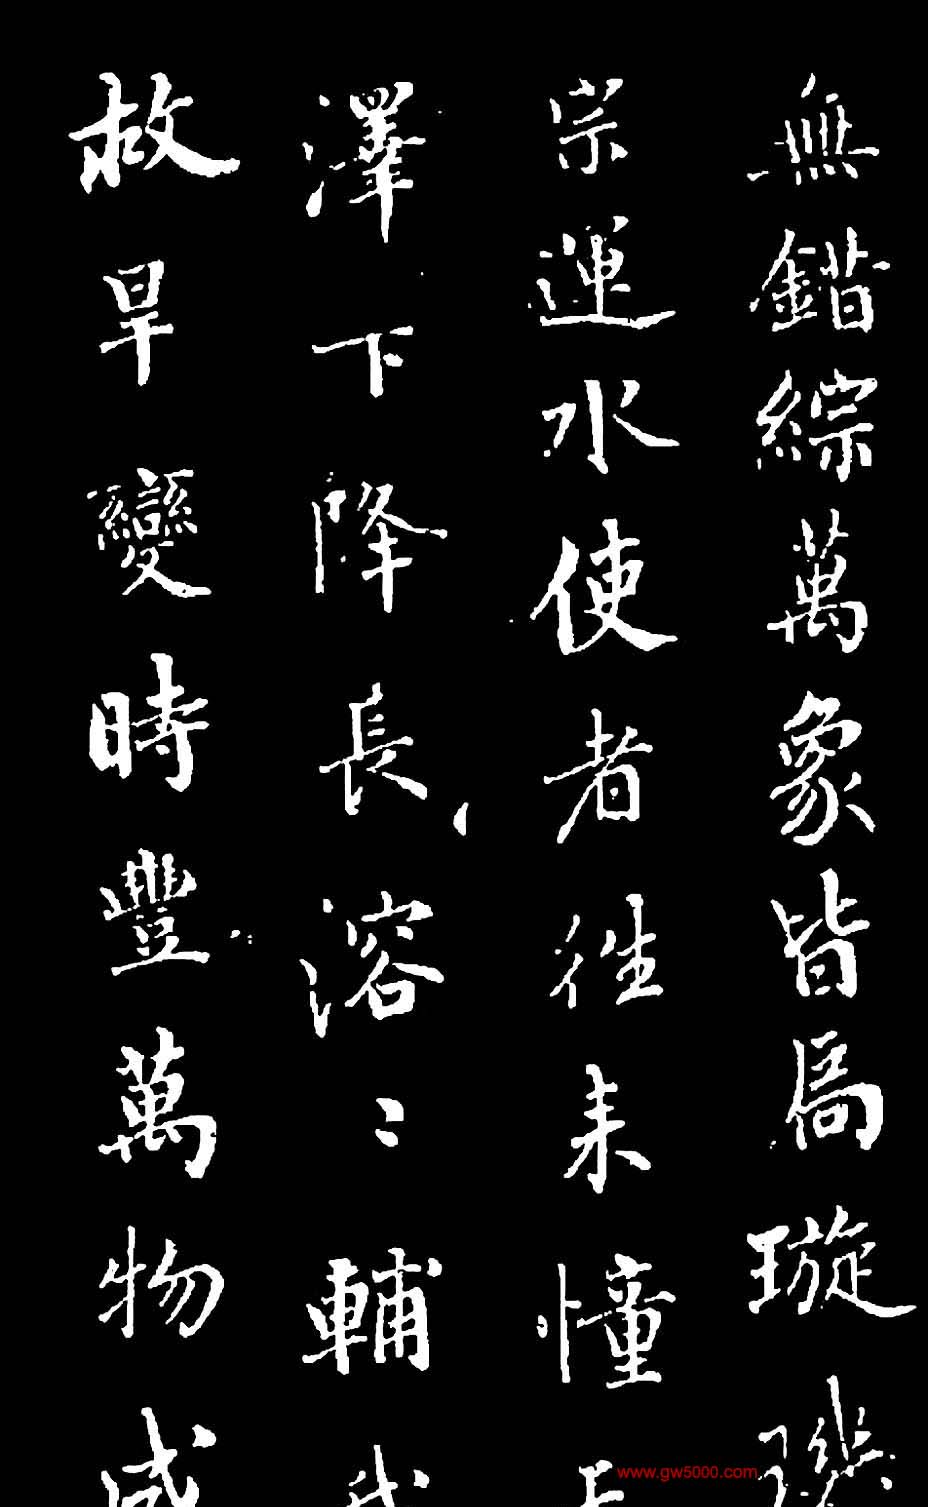 無錯綜萬象皆爲璇璣
宗運水使者往来憧
澤下降長溶〻輔
救旱變時豐萬物咸
www.gw5000.com